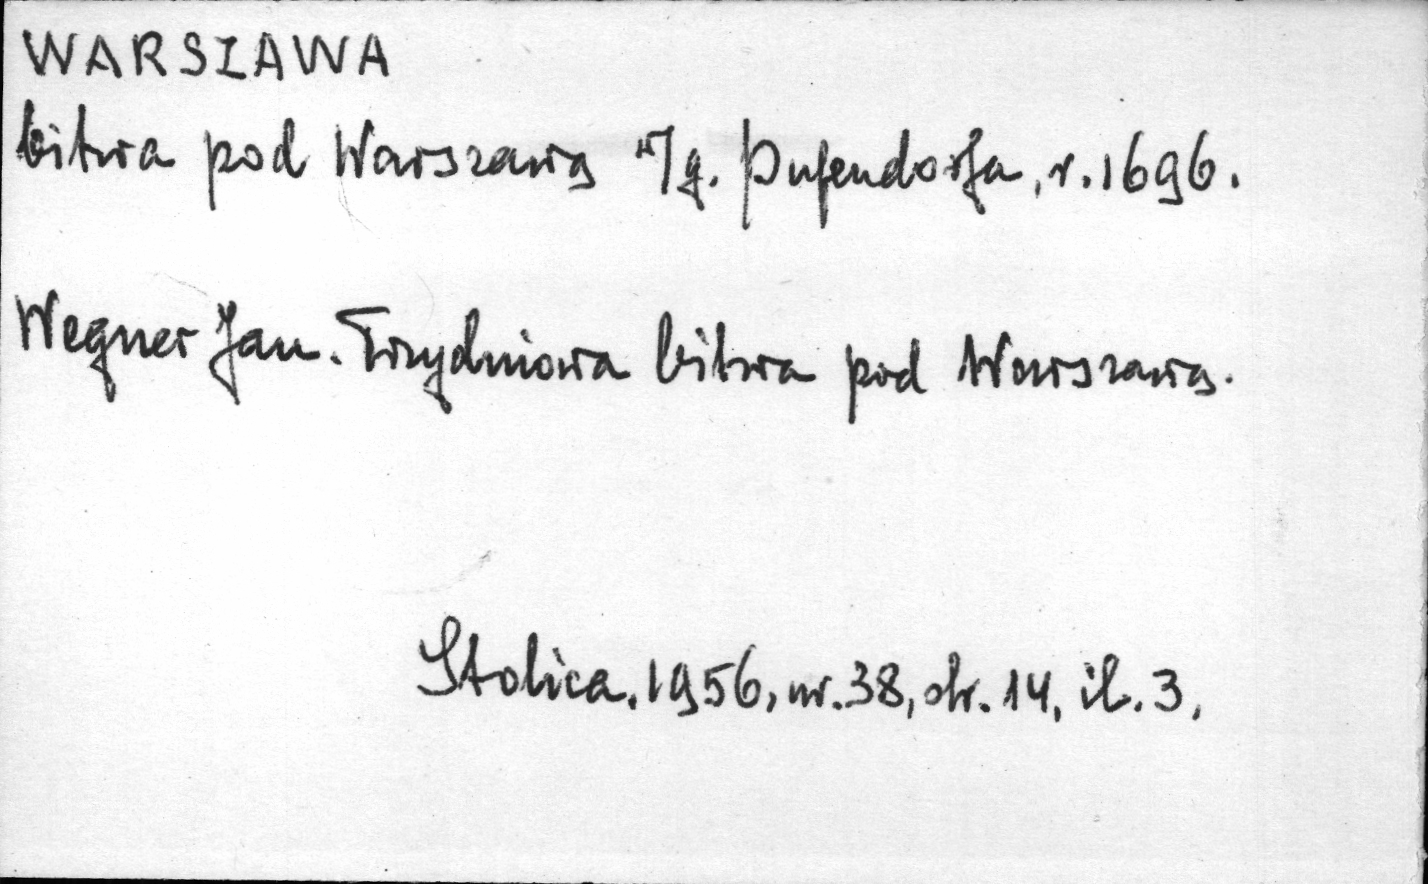 WARSZAWA
bitwa pod Warszawą w/g. Pufendorfa, r. 1696.
Wegner Jan. Trzydniowa bitwa pod Warszawą.
Stolica. 1956, nr. 38, str. 14, il. 3,